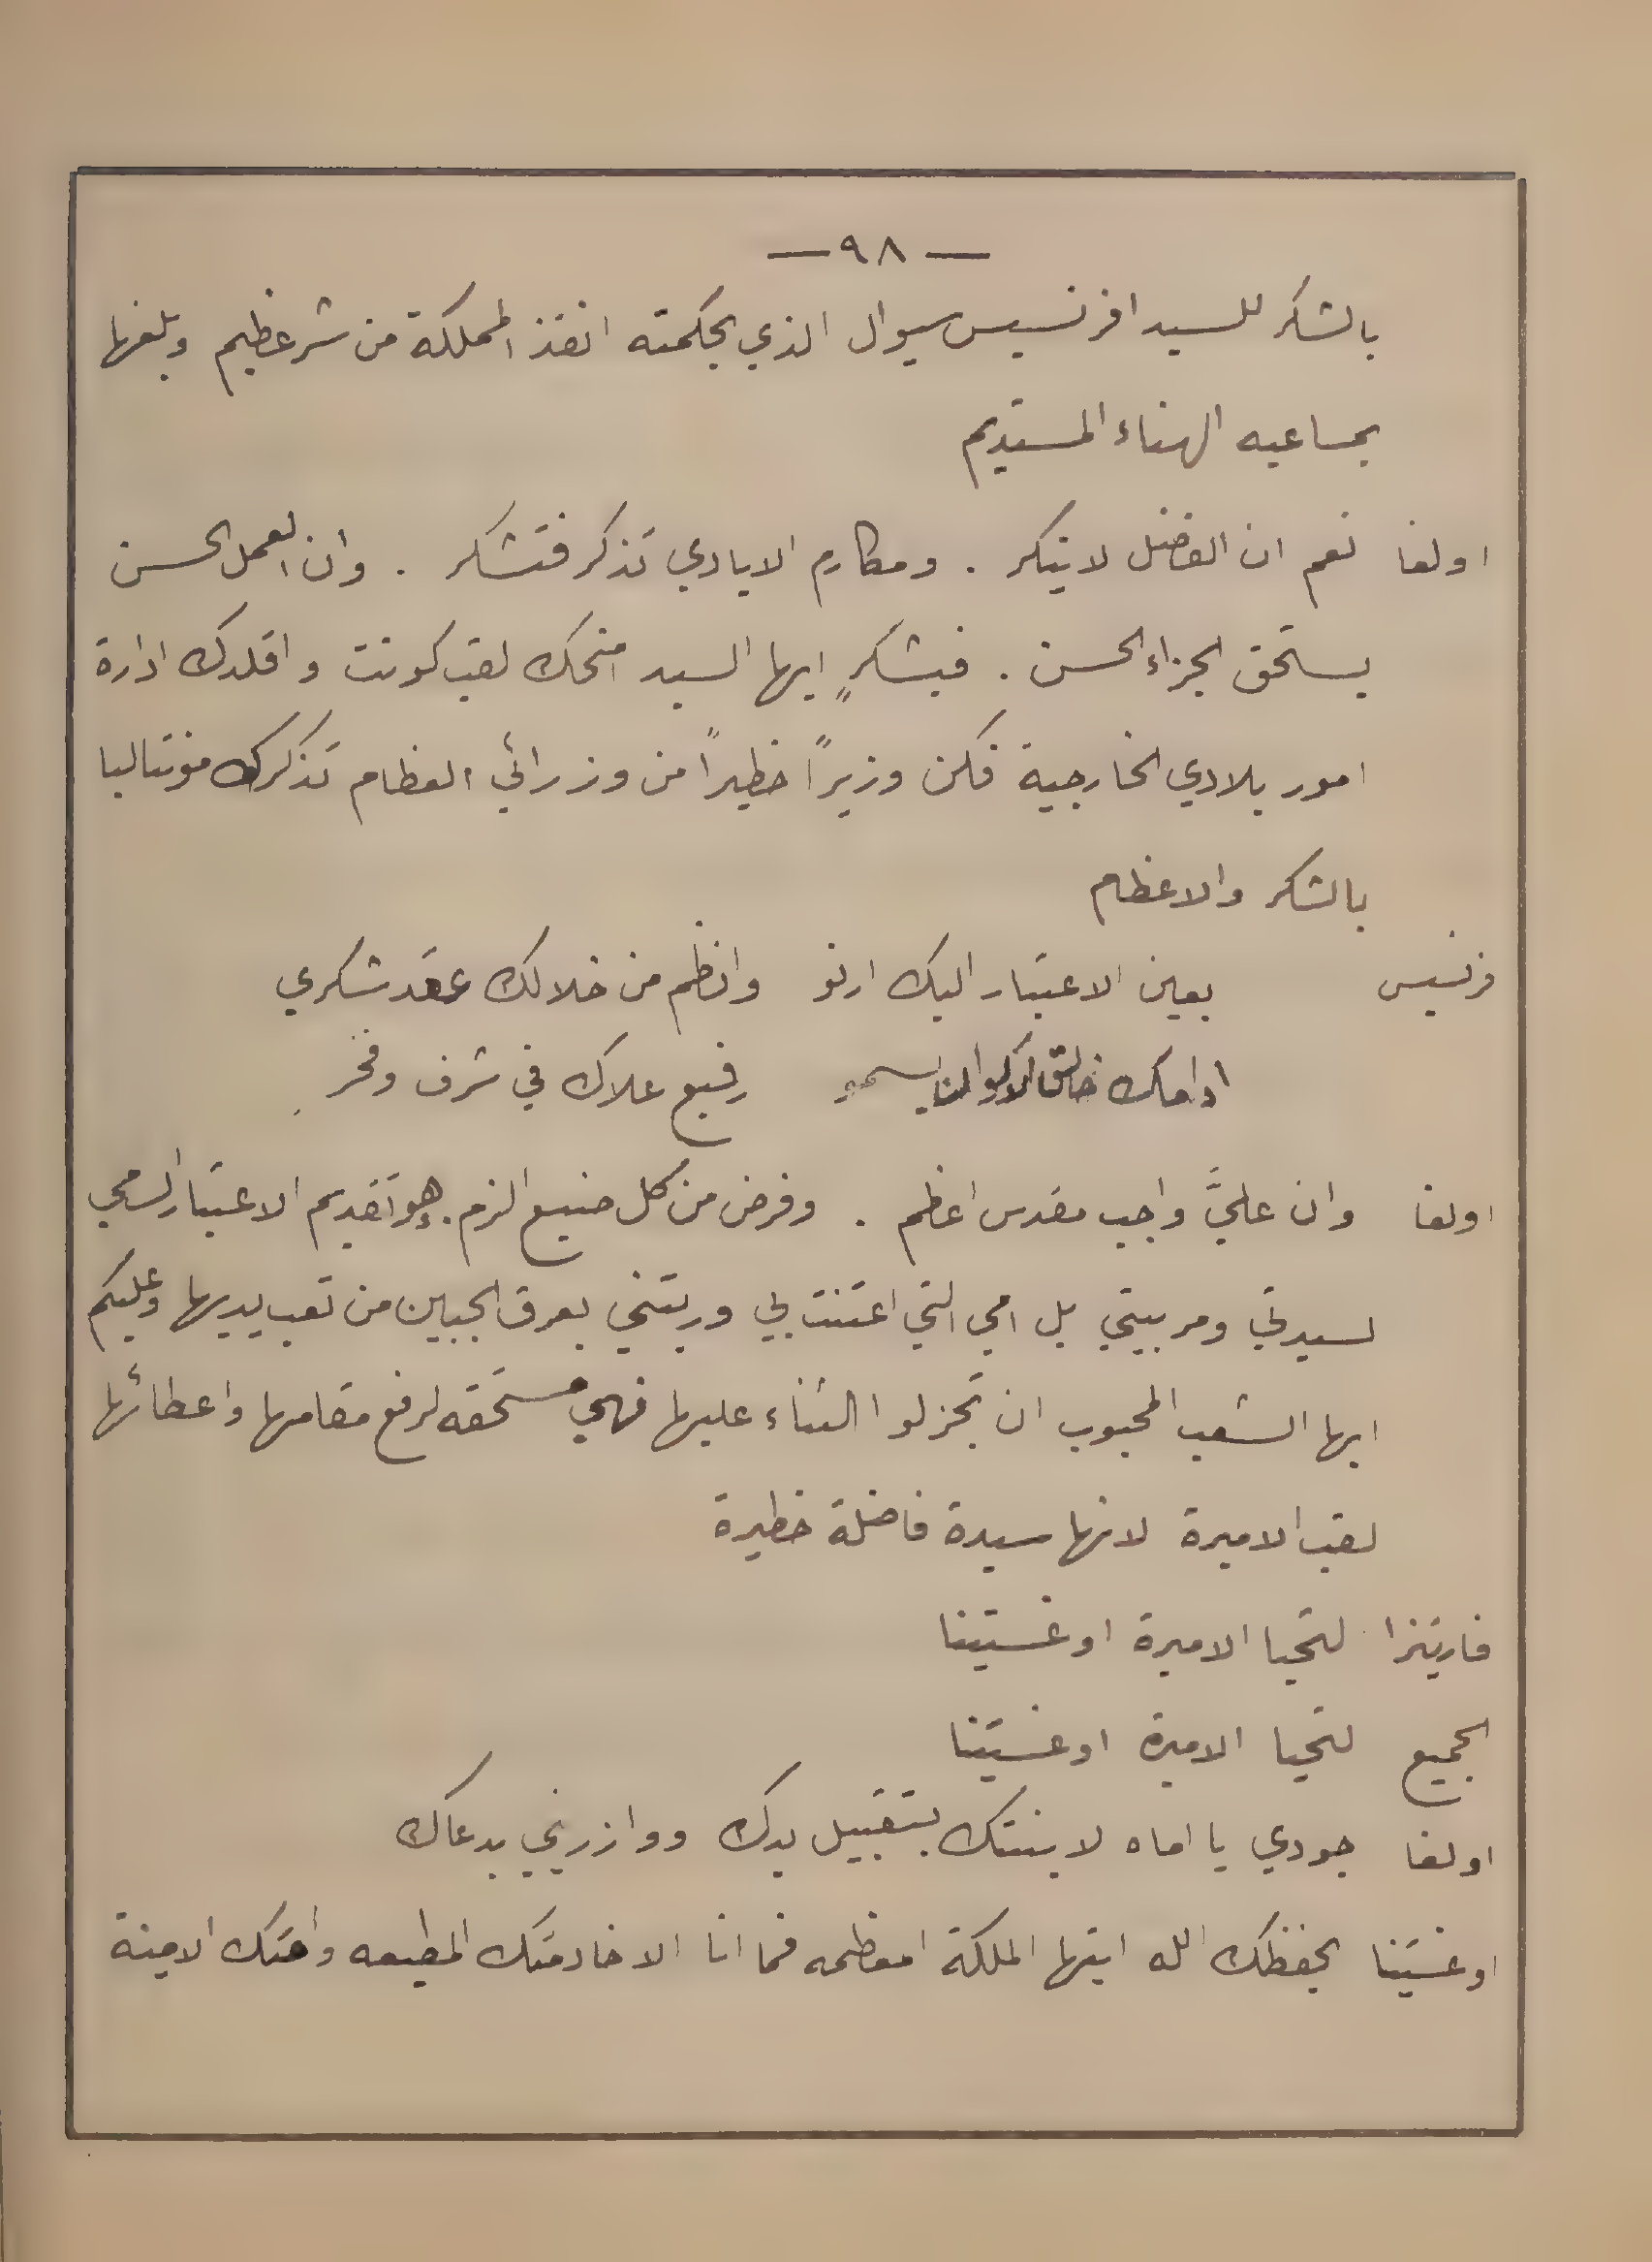 — ٩٨ —
بالشكر للسيد افرنسيس سيوال الذي بحكمته انقذ المملكة من شر عظيم وبلغها
بمساعيه الهناء المستديم
اولغا نعم ان الفضل لاينكر . ومكارم الايادي تذكر فتشكر . وان العمل الحسن
يستحق الجزاء الحسن . فبشكرٍ ايها السيد امنحك لقب كونت واقلدك ادارة
امور بلادي الخارجية فكن وزيرًا خطيرًا من وزرائي العظام تذكرك مونتاليا
بالشكر والاعظام
فرنسيس بعين الاعتبار اليك ارنو وانظم من خلالك عقد شكري
ادامك خالق الاكوان يسمو رفيع علاك في شرف وفخر
اولغا وان عليَّ واجب مقدس اعظم . وفرض من كل صنيع الزم . هو تقديم الاعتبار السامي
لسيدتي ومربيتي بل امي التي اعتنت بي وربتني بعرق الجبين من تعب يديها وعليكم
ايها الشعب المحبوب ان تجزلوا الثناء عليها فهي مستحقه لرفع مقامها واعطائها
لقب الاميرة لانها سيدة فاضلة خطيرة
فارتنزا لتحيا الاميرة اوغستينا
الجميع لتحيا الاميرة اوغستينا
اولغا جودي يا اماه لابنتك بتقبيل يدك ووازريني بدعاك
اوغستينا يحفظك الله ايتها الملكة امعظمه فما انا الا خادمتك المطيعه وامتك الامينة